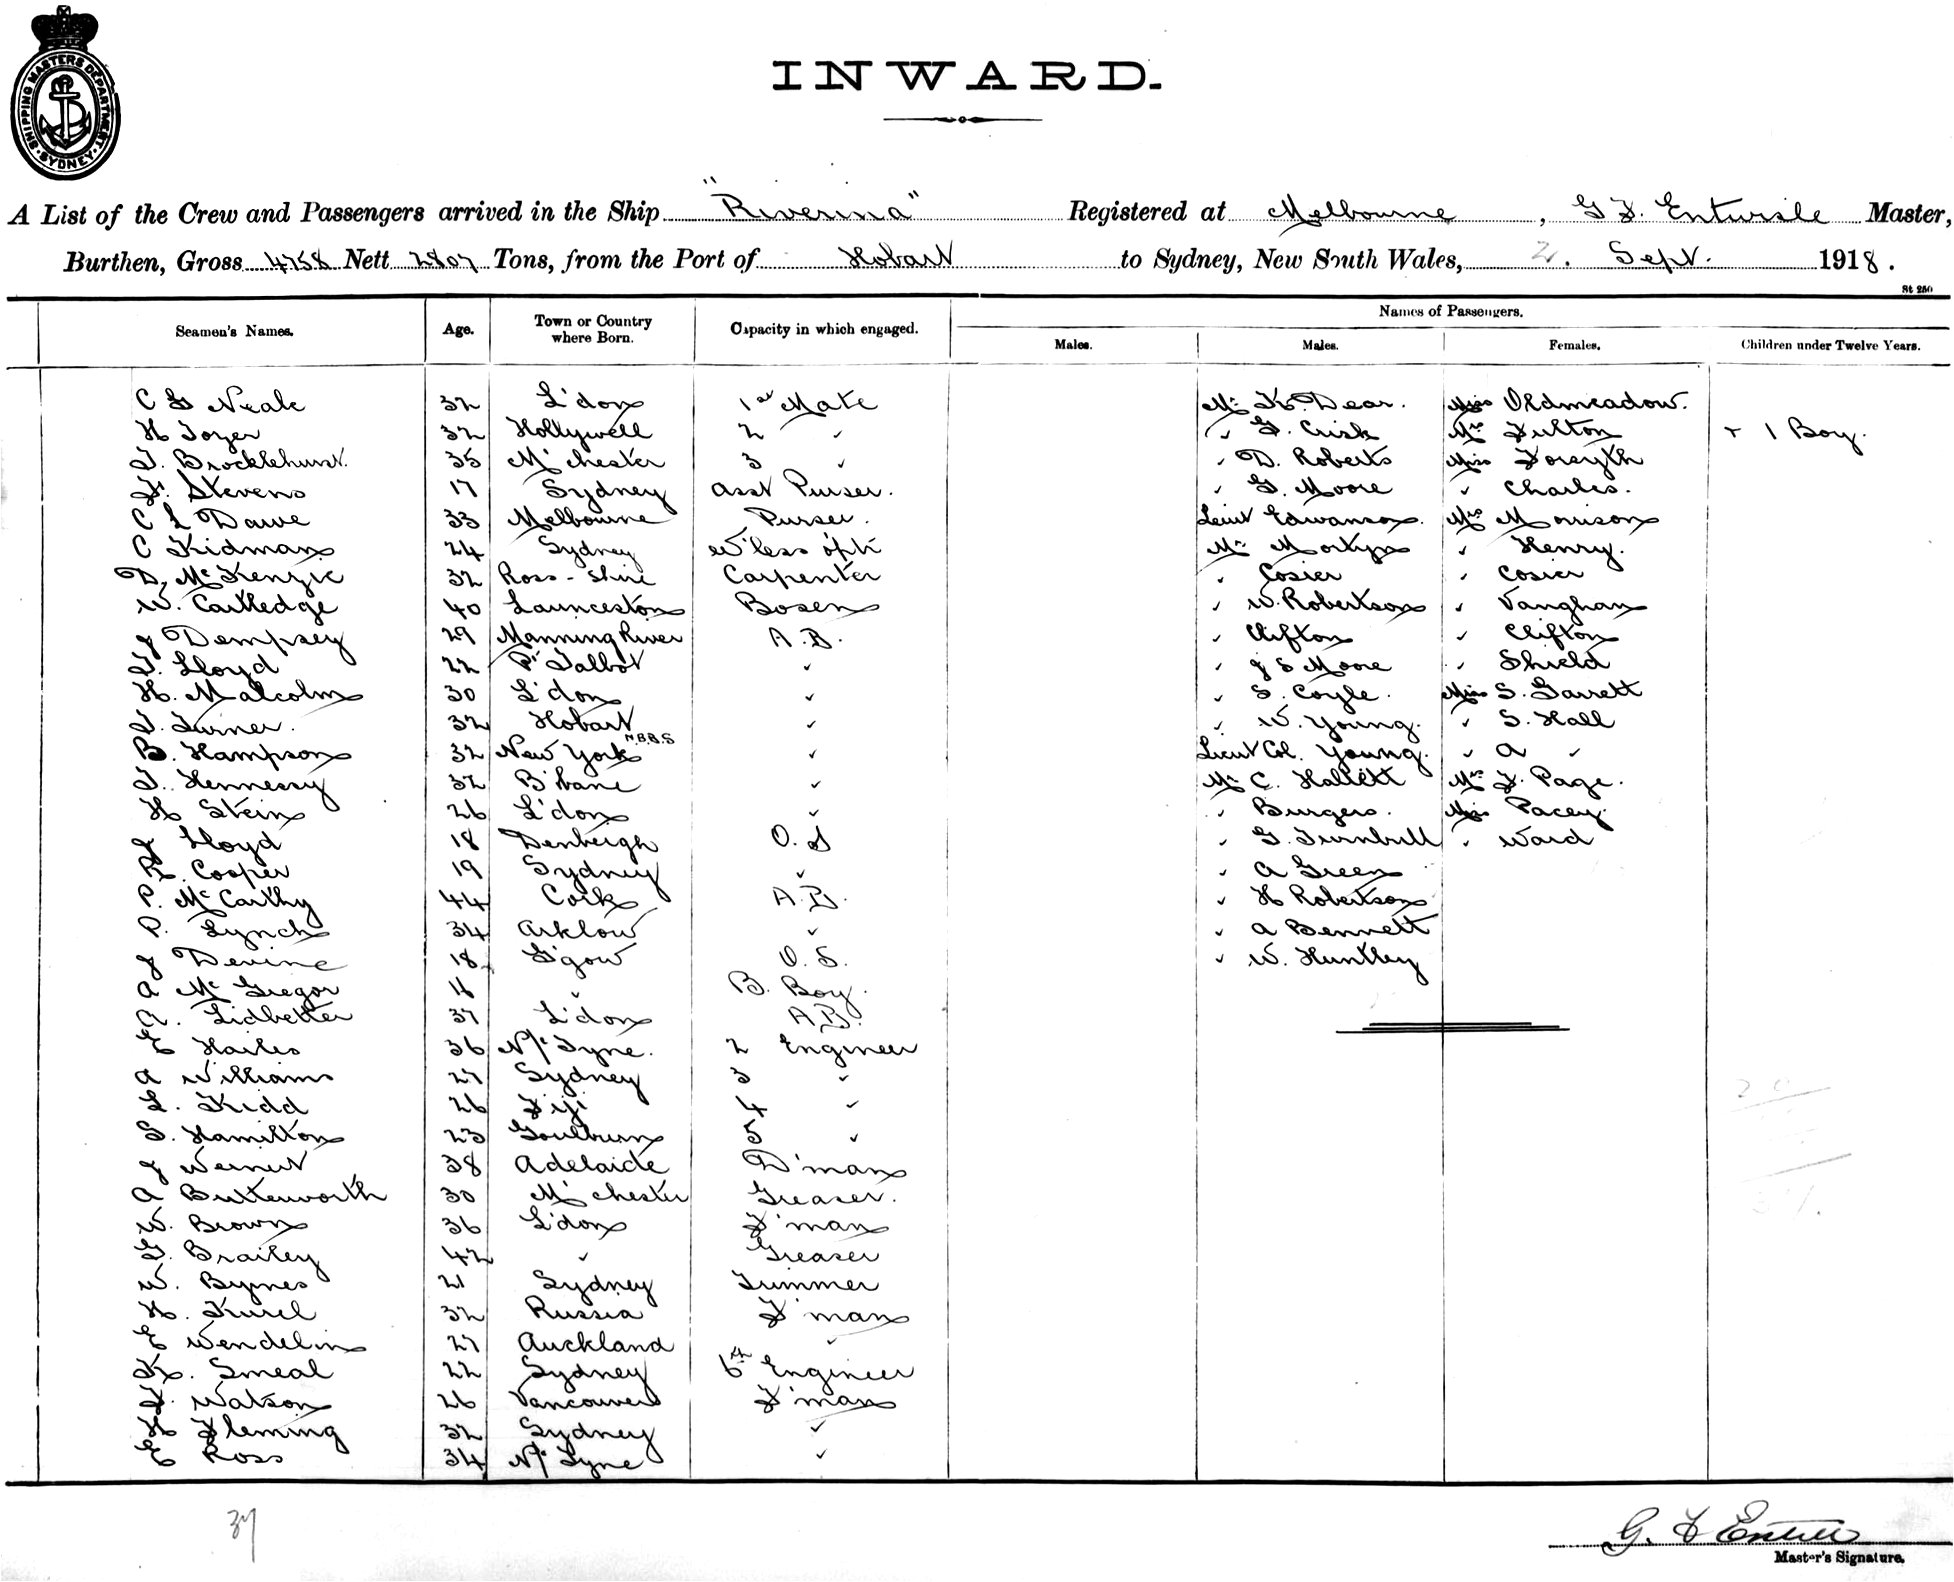 SHIPPING MASTERS DEPARTMENT
SYDNEY
INWARD.
A List of the Crew and Passengers arrived in the Ship "Riverina" Registered at Melbourne, G F. Entwisle Master,
Burthen, Gross 4758 Nett 2807 Tons, from the Port of Hobart to Sydney, New South Wales, 2. Sept. 1918.
St 250
Seamen's Names. Age. Town or Country where Born. Capacity in which engaged. Names of Passengers.
Males. Males. Females. Children under Twelve Years.
C G Neale 32 L'don 1st Mate Mr K. Dear. Miss Oldmeadow.
H Tozer 32 Hollywell 2 " " G. Crisk Mrs Fulton + 1 Boy.
J. Brocklehurst. 35 M'chester 3 " " D. Roberts Miss Forsyth
F. Stevens 17 Sydney Asst Purser. " G. Moore " Charles.
C L Dawe 33 Melbourne Purser. Lieut Edwanson. Mrs Morrison
C Kidman 24 Sydney W'less optr Mr Morkyn " Henry.
D. McKenzie 32 Ross-shire Carpenter " Cosier " Cosier
W. Cartledge 40 Launceston Bosen " W. Robertson " Vaughan
J Dempsey 29 Manning River A.B. " Clifton " Clifton
T. Lloyd 22 Pt Talbot " " J S Moore " Shield
H. Malcolm 30 L'don " " S. Coyle. Miss S. Garrett
J. Turner. 32 Hobart " " W. Young. " S. Hall
B. Hampson 32 New York N.B.B.S " Lieut Col. Young. " A "
J. Hennessy 32 B'bane " Mr C. Hallett Mrs F. Page.
H Stein 26 L'don " " Burgers. Miss Pacey.
J Lloyd 18 Denbeigh O.S " G. Turnbull " Ward
R. Cooper 19 Sydney " " A Green
P. McCarthy 44 Cork A.B. " H Robertson
P. Lynch 34 Arklow " " A Bennett
J Devine 18 G'gow O.S. " W. Huntley
A McGregor 16 " B. Boy.
A. Lidbetter 37 L'don A.B.
E Hailes 36 N/c Tyne. 2 Engineer
A Williams 27 Sydney 3 "
L. Kidd 26 Fiji 4 "
S. Hamilton 23 Goulburn 5 "
J Weinert 38 Adelaide D'man
A Butterworth 30 M'chester Greaser.
W. Brown 36 L'don F'man
G. Brailey 42 " Greaser
W. Byrnes 21 Sydney Trimmer
H. Kurel 32 Russia F'man
E Wendelin 27 Auckland "
K. Smeal 22 Sydney 6th Engineer
J. Watson 26 Vancouver F'man
H Fleming 32 Sydney "
E Ross 34 N/c Tyne "
37
G. F Entwisle
Master's Signature.